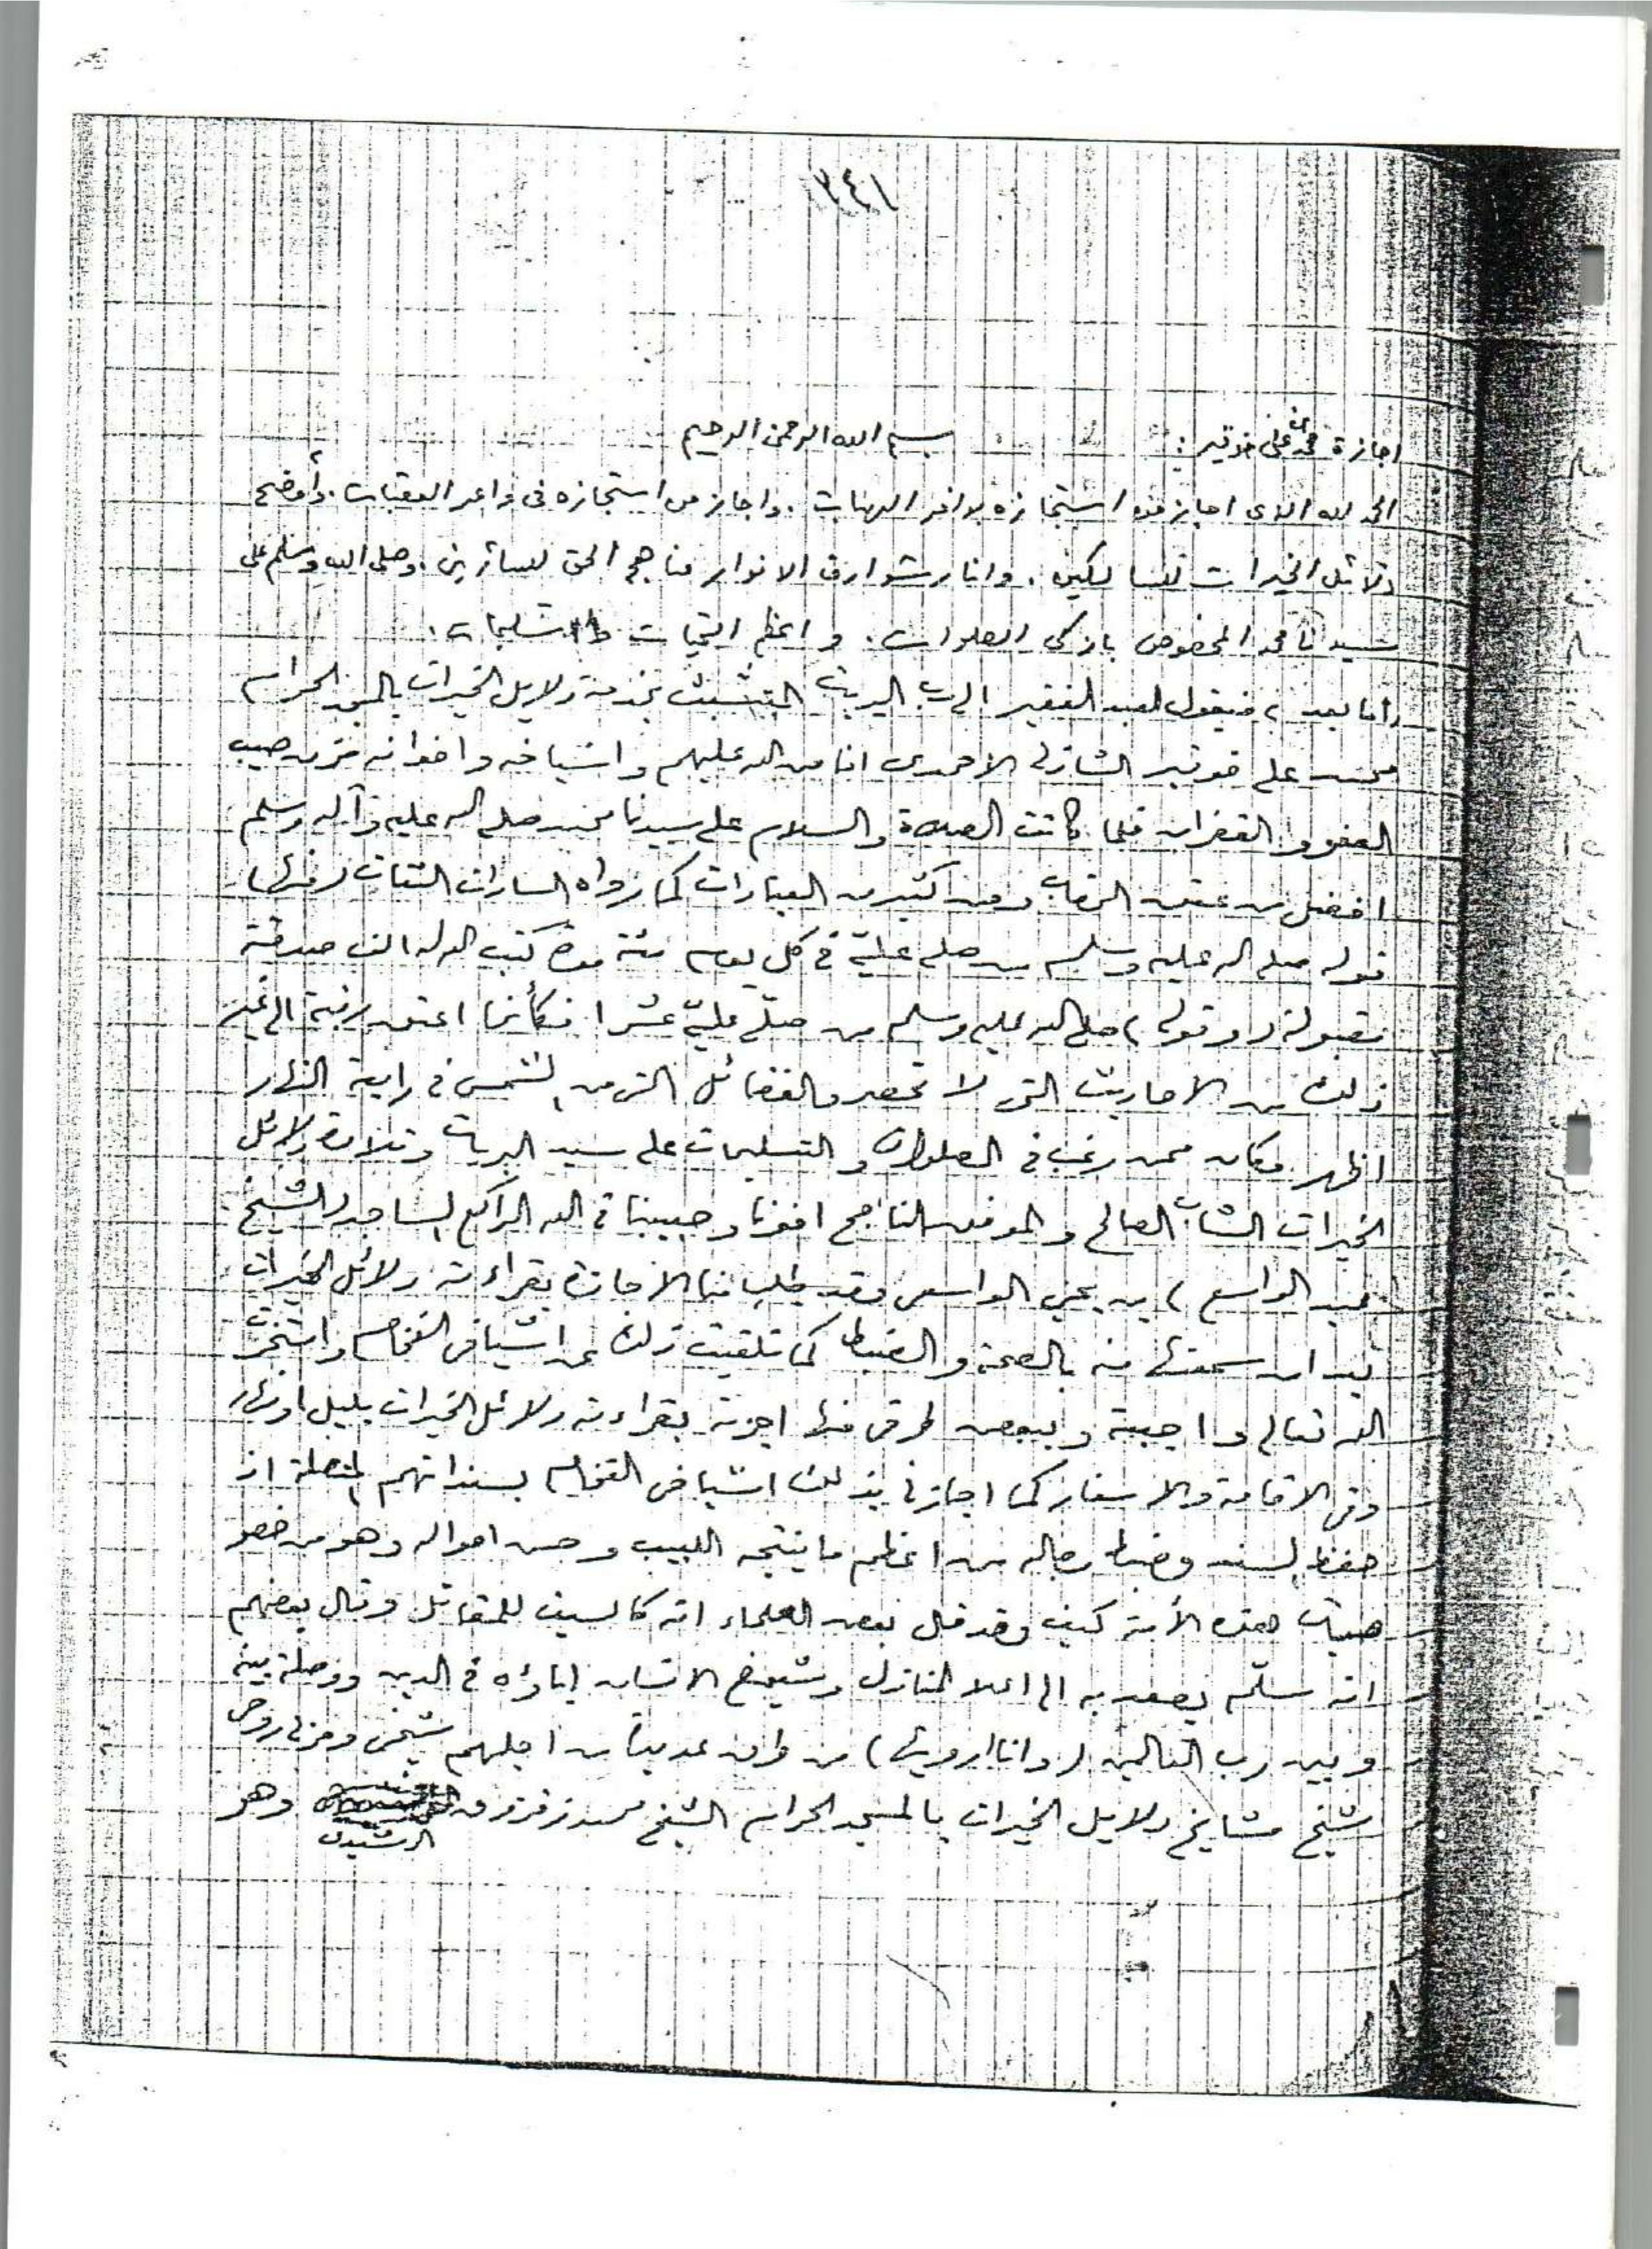 ٢٤١
اجازة محمد على خوقير :
بسم الله الرحمن الرحيم
الحمد لله الذى اجاز من استجازه بوافر الهبات . واجاز من استجازه فى واعر العقبات . وأوضح
دلائل الخيرات للسالكين . وانار بشوارق الانوار مناهج الحق للسائرين . وصلى الله وسلم على
سيدنا محمد المخصوص بازكى الصلوات . واعظم التحيات والتسليمات .
أما بعد ، فيقول العبد الفقير الى رب البريات المتشبث بخدمة دلايل الخيرات بالمسجد الحرام
محمد على خوقير الشاذلى الاحمدى افاض الله عليهم واشياخه واخوانه من صبيب
العفو والغفران فلما كانت الصلاة والسلام على سيدنا محمد صلى الله عليه وآله وسلم
افضل من عتق الرقاب ومن كثير من العبادات كما رواه السادات الثقات (فمنها)
قوله صلى الله عليه وسلم من صلى عليّ في كل يوم مئة مرة كتب الله له الف صدقة
مقبولة (وقوله) صلى الله عليه وسلم من صلّى عليّ عشرا فكأنما اعتق رقبة الى غير
ذلك من الاحاديث التى لا تحصر والفضائل التى من الشمس في رابعة النهار
اظهر وكان ممن رغب في الصلوات والتسليمات على سيد البريات وتلاوة دلائل
الخيرات الشاب الصالح والموفق الناجح اخونا وحبيبنا في الله الراكع الساجد الشيخ
(عبد الواسع) بن يحيى الواسعى وقد طلب منا الاجازة بقراءته دلائل الخيرات
بعد ان سمعتها منه بالصحة والضبط كما تلقيت ذلك عن اشياخى الفخام واستخرت
الله تعالى واجبته وببعض طرقى منها اجزته بقراءته دلائل الخيرات بليل او نهار
وفى الاقامة والاسفار كما اجازنى بذلك اشياخى الفخام بسنداتهم المتصلة اذ
حفظ السند وضبط رجاله من اعظم ما ينتجه اللبيب وحسن احواله وهو من خصو
صيات هذه الأمة كيف وقد قال بعض العلماء انه كالسيف للمقاتل وقال بعضهم
انه سلّم يصعد به الى اعلا المنازل وشيوخ الانسان اباؤه في الدين ووصلة بينه
وبين رب العالمين (وانا ارويها) من طرق عديدة من اجلهم شيخى ومربى روحى
شيخ مشايخ دلايل الخيرات بالمسجد الحرام الشيخ محمد
الرشيدى وهو